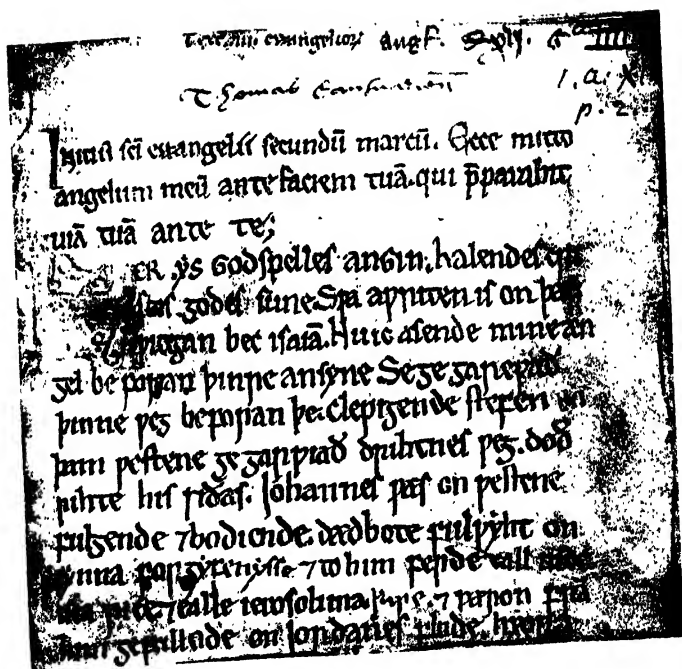 Thomas
1. a. x
p. 2
Initiū sci euangelii secundū marcū. Ecce mitto
angelum meū ante faciem tuā. qui p̄parabit
uiā tuā ante te;
ER ys Godspelles angin. halendes
godes sune. Sƿa aƿriten is on
ƿitegan bec isaiā. Nu ic asende minne an
gel beforan þinre ansyne. Se ge garƿað
þinne ƿeg beforan þe. Clepigende stefen on
þam ƿestene ge garƿiað drihtnes ƿeg. doð
rihte his siðas. Iohannes ƿas on ƿestene
fulgende ⁊ bodiende. dædbote fulƿyht on
synna forgyfenysse ⁊ to him ferde eall
rice ⁊ ealle ierosolima ⁊ ƿæron
gefullode on iordanes flode.